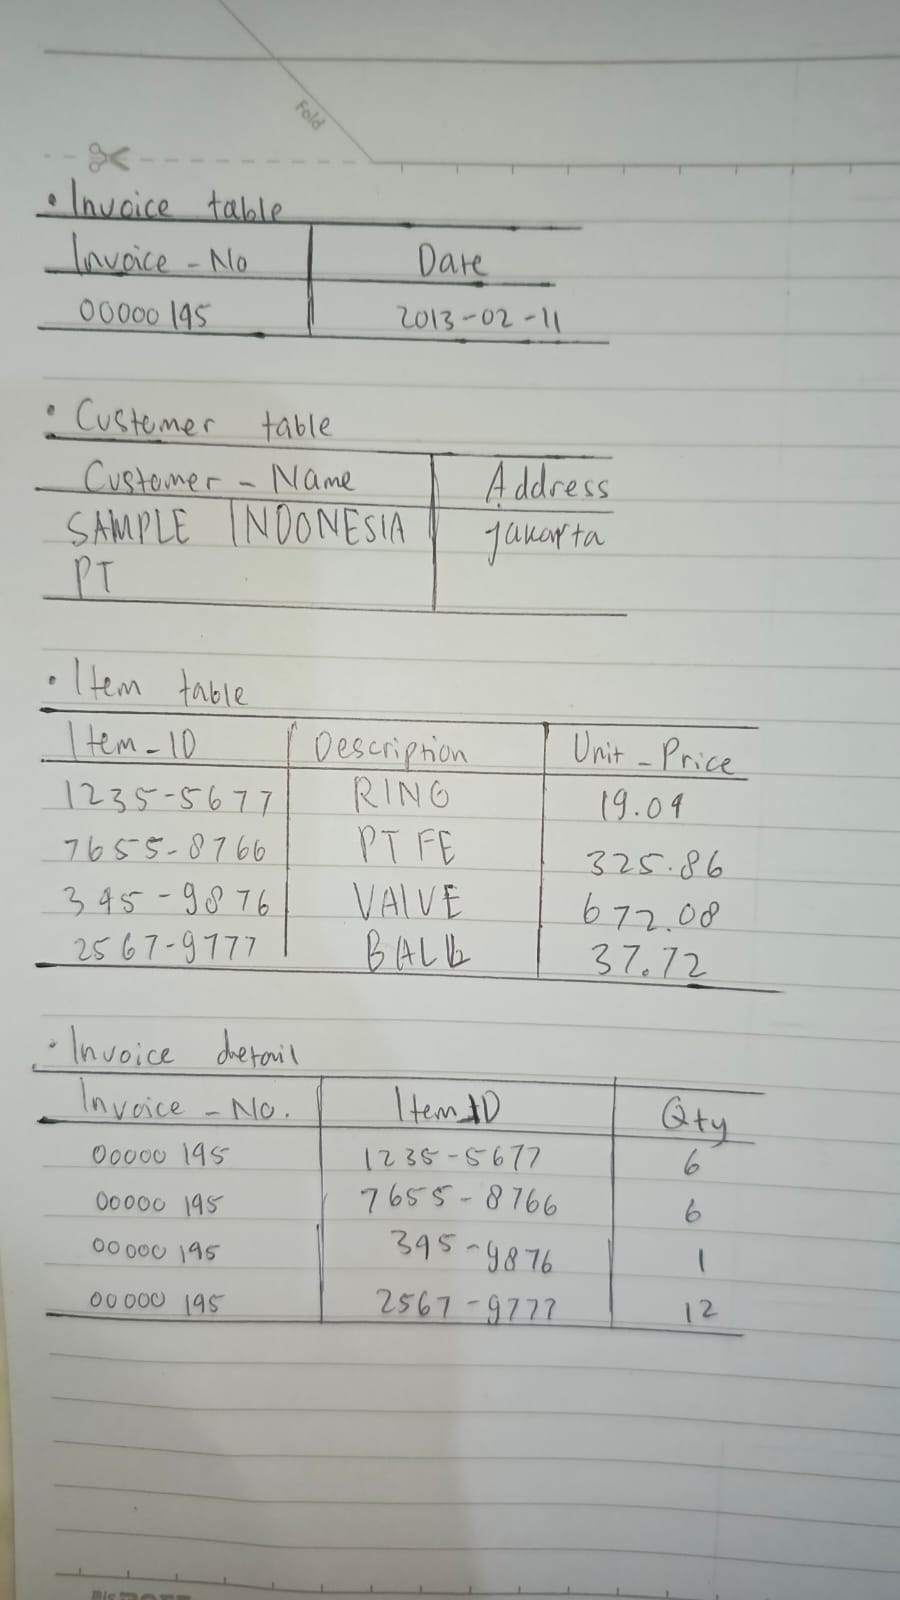 Fold
• Invoice table
Invoice - No Date
00000195 2013-02-11
• Customer table
Customer - Name Address
SAMPLE INDONESIA Jakarta
PT
• Item table
Item - ID Description Unit - Price
1235-5677 RING 19.09
7655-8766 PTFE 325.86
395-9876 VALVE 672.08
2567-9777 BALL 37.72
• Invoice detail
Invoice - No. Item ID Qty
00000195 1235-5677 6
00000195 7655-8766 6
00000195 395-9876 1
00000195 2567-9777 12